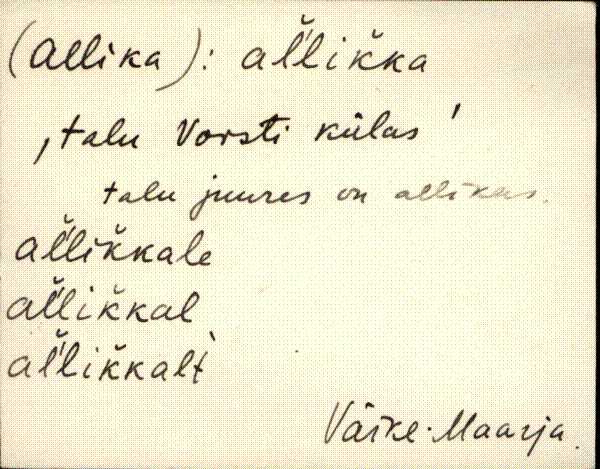 (Allika): al̆'likka
‚talu Vorsti külas'
talu juures on allikas.
al̆'lik̆kale
al̆'lik̆kal
al̆'lik̆kalt̀
Väike-Maarja.